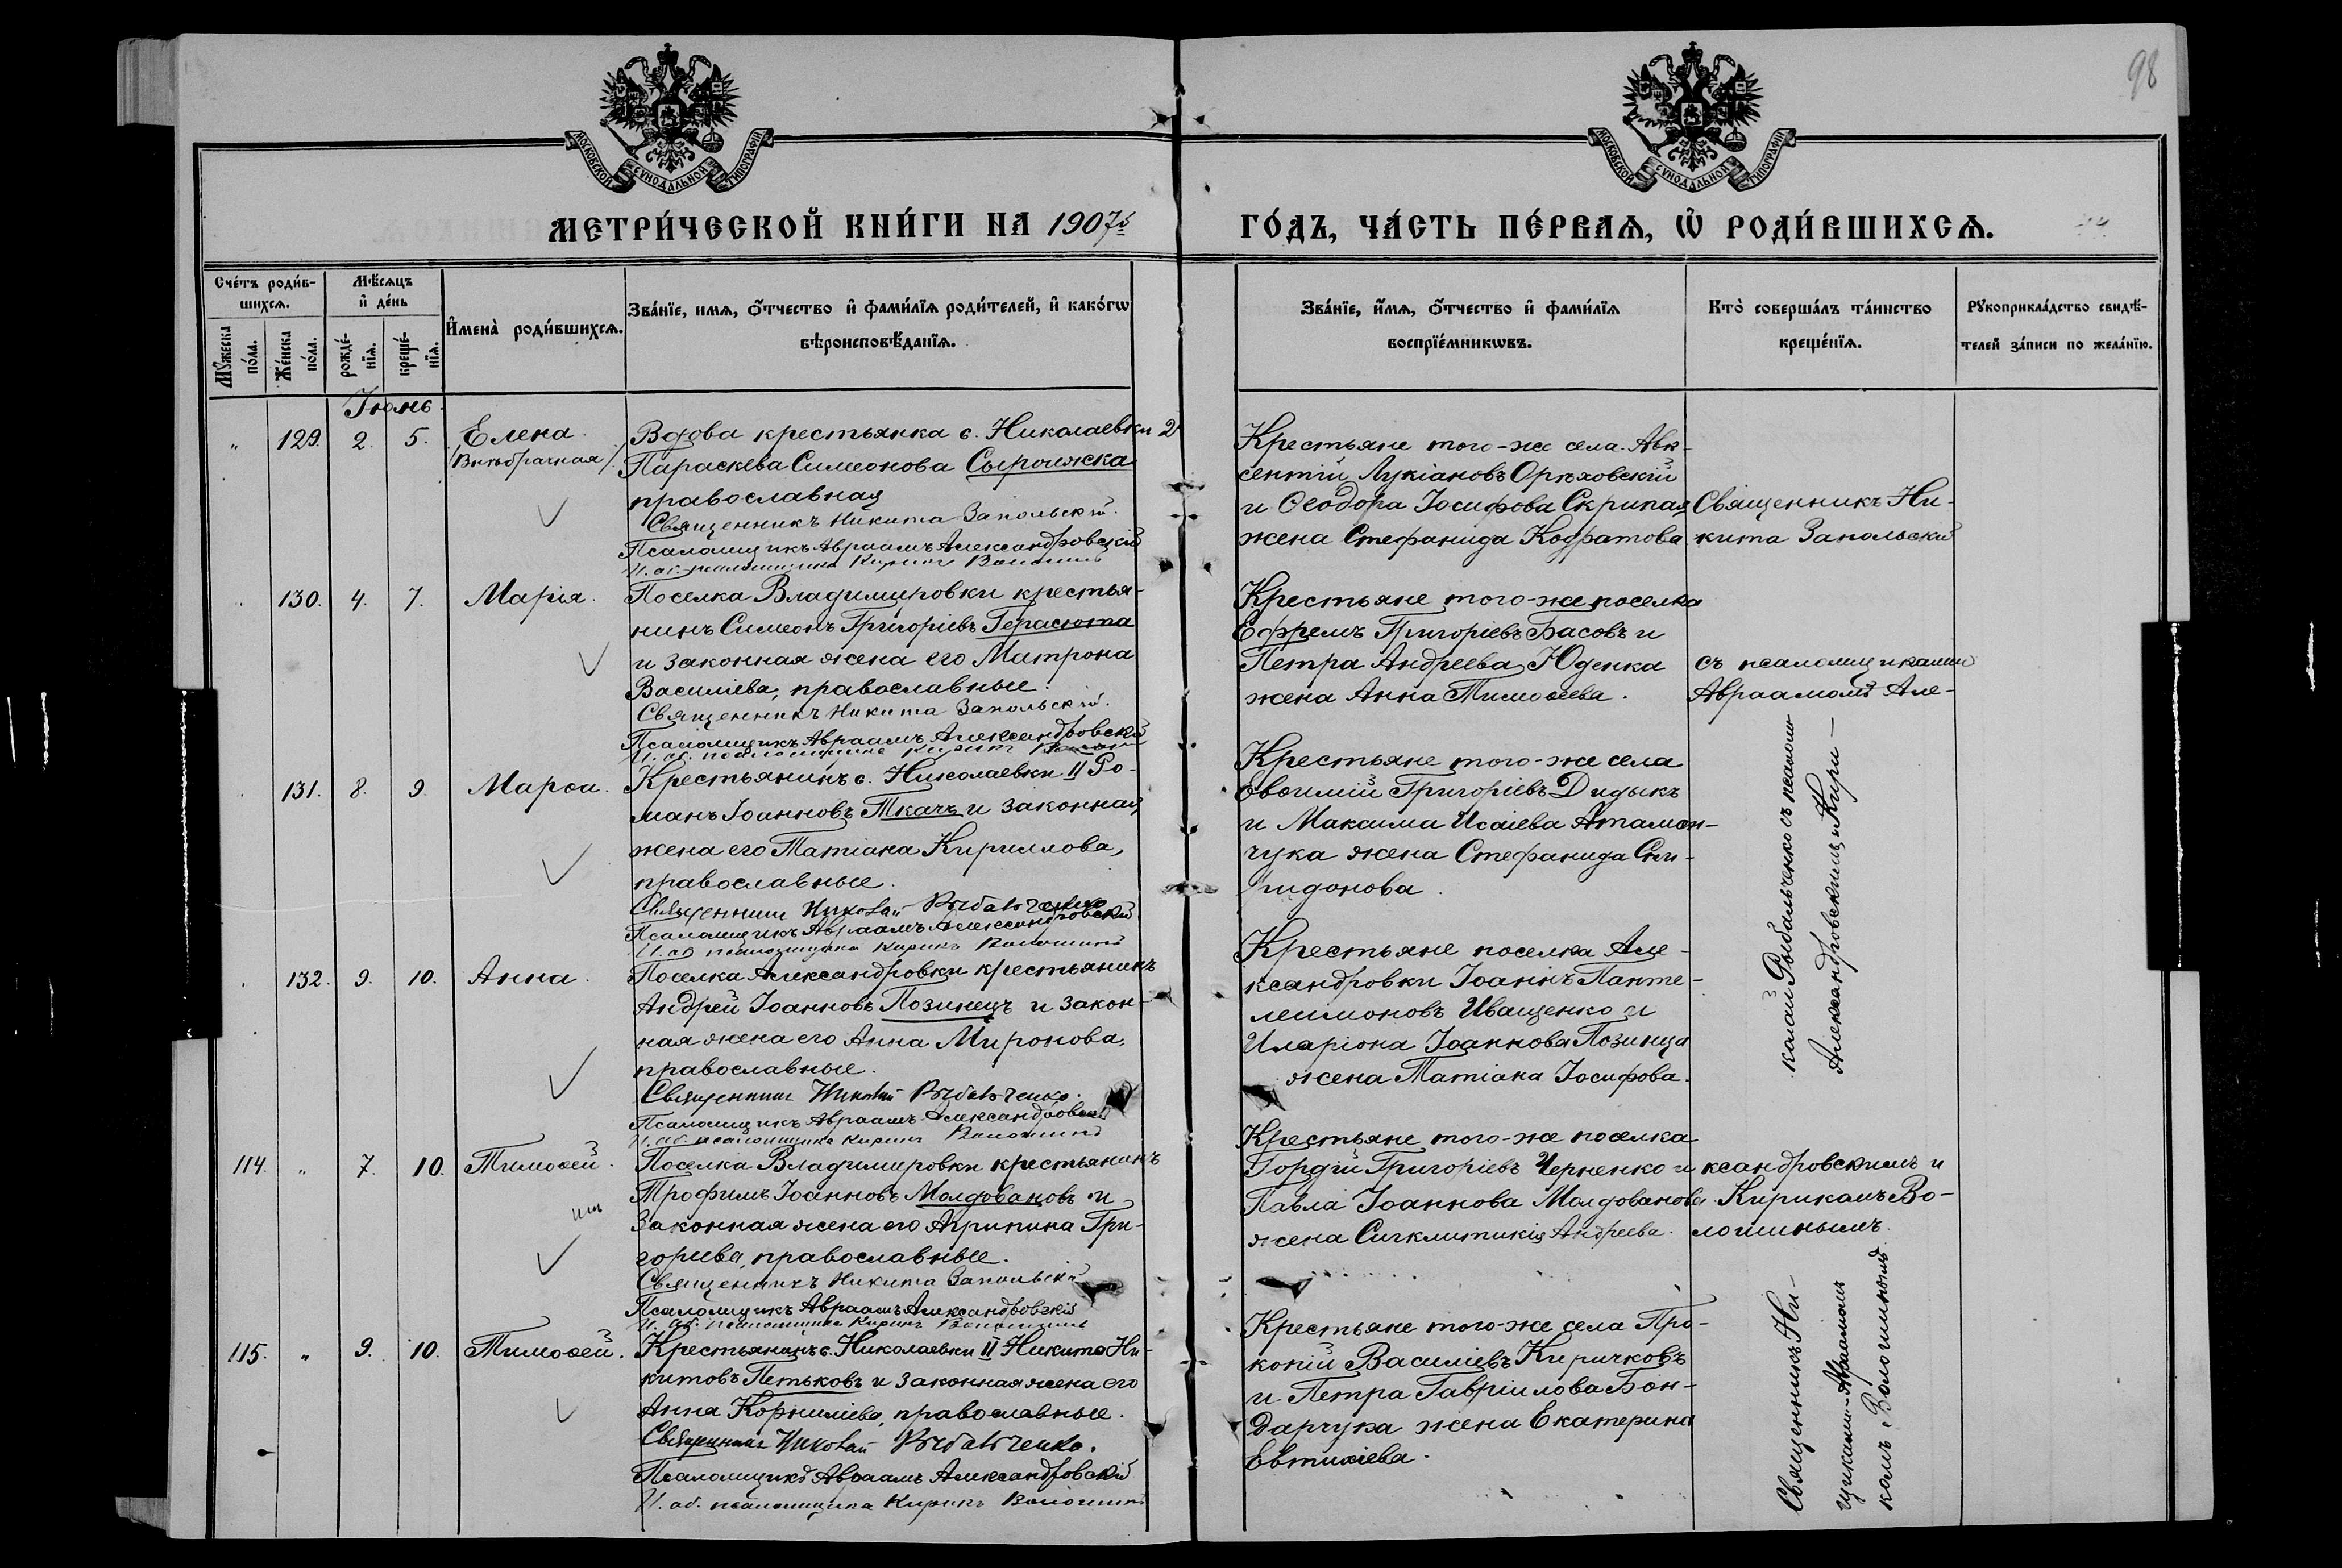 98
МОСКОВСКОЙ СѴНОДАЛЬНОЙ ТИПОГРАФІИ
МОСКОВСКОЙ СѴНОДАЛЬНОЙ ТИПОГРАФІИ
МЕТРИ́ЧЕСКОЙ КНИ́ГИ НА 1907й
ГО́ДЪ, ЧА́СТЬ ПЕ́РВАѦ, Ѡ҆ РОДИ́ВШИХСѦ.
Сче́тъ роди́в-
шихсѧ.
Мꙋжеска по́ла.
Же́нска по́ла.
Мѣ́сѧцъ
и҆ де́нь
рожде́-
нїѧ.
креще́-
нїѧ.
И҆мена̀ роди́вшихсѧ.
Зва́нїе, имѧ, ѻ҆́тчество и҆ фами́лїѧ роди́телей, и҆ како́гѡ
вѣроисповѣ́данїѧ.
Зва́нїе, и҆́мѧ, ѻ҆́тчество и҆ фами́лїѧ
воспрїе́мникѡвъ.
Кто̀ соверша́лъ та́инство
креще́нїѧ.
Рꙋкоприкла́дство свидѣ́-
телей за́писи по жела́нїю.
Іюнь.
" 129. 2. 5. Елена.
(Внѣбрачная)
Вдова крестьянка с. Николаевки 2
Параскева Симеонова Сыроижка
православная
Священникъ Никита Запольскій.
Псаломщикъ Авраамъ Александровскій
И. об. псаломщика Кирикъ Волошинъ
Крестьяне того-же села Авк-
сентій Лукіановъ Орѣховскій
и Ѳеодора Іосифова Скрипая
жена Стефанида Кодратова.
Священникъ Ни-
кита Запольскій
130. 4. 7. Марія.
Поселка Владимировки крестья-
нинъ Симеонъ Григоріевъ Герасюта
и законная жена его Матрона
Василіева, православные.
Священникъ Никита Запольскій.
Псаломщикъ Авраамъ Александровскій
И. об. псаломщика Кирикъ
Крестьяне того-же поселка
Ефремъ Григоріевъ Басовъ и
Петра Андреева Юденка
жена Анна Тимоѳеева.
съ псаломщиками
Авраамомъ Але-
131. 8. 9. Марѳа.
Крестьянинъ с. Николаевки II Ро-
манъ Іоанновъ Ткачъ и законная
жена его Татіана Кириллова,
православные.
Священникъ Николай Рыбальченко
Псаломщикъ Авраамъ Александровскій
И. об. псаломщика Кирикъ Волошинъ
Крестьяне того-же села
Евѳимій Григоріевъ Дидыкъ
и Максима Исаіева Атаман-
чука жена Стефанида Спи-
ридонова.
132. 9. 10. Анна.
Поселка Александровки крестьянинъ
Андрей Іоанновъ Позинецъ и закон-
ная жена его Анна Миронова,
православные.
Священникъ Николай Рыбальченко.
Псаломщикъ Авраамъ Александровскій
И. об. псаломщика Кирикъ Волошинъ
Крестьяне поселка Але-
ксандровки Іоаннъ Панте-
леимоновъ Иващенко и
Иларіона Іоаннова Позинца
жена Татіана Іосифова.
114. " 7. 10. Тимоѳей.
Поселка Владимировки крестьянинъ
Трофимъ Іоанновъ Молдовановъ и
законная жена его Агрипина Гри-
горіева, православные.
Священникъ Никита Запольскій
Псаломщикъ Авраамъ Александровскій
И. об. псаломщика Кирикъ Волошинъ
Крестьяне того-же поселка
Гордій Григоріевъ Черненко и
Павла Іоаннова Молдованова
жена Сигклитикія Андреева.
ксандровскимъ и
Кирикомъ Во-
лошинымъ.
115. " 9. 10. Тимоѳей.
Крестьянинъ с. Николаевки II Никита Ни-
китовъ Петьковъ и законная жена его
Анна Корниліева, православные.
Священникъ Николай Рыбальченко.
Псаломщикъ Авраамъ Александровскій
И. об. псаломщика Кирикъ Волошинъ
Крестьяне того-же села Про-
копій Василіевъ Киричковъ
и Петра Гавріилова Бон-
дарчука жена Екатерина
Евтихіева.
Священникъ Ни-
колай Рыбальченко съ псалом-
щиками Авраамомъ
Александровскимъ и Кири-
комъ Волошинымъ